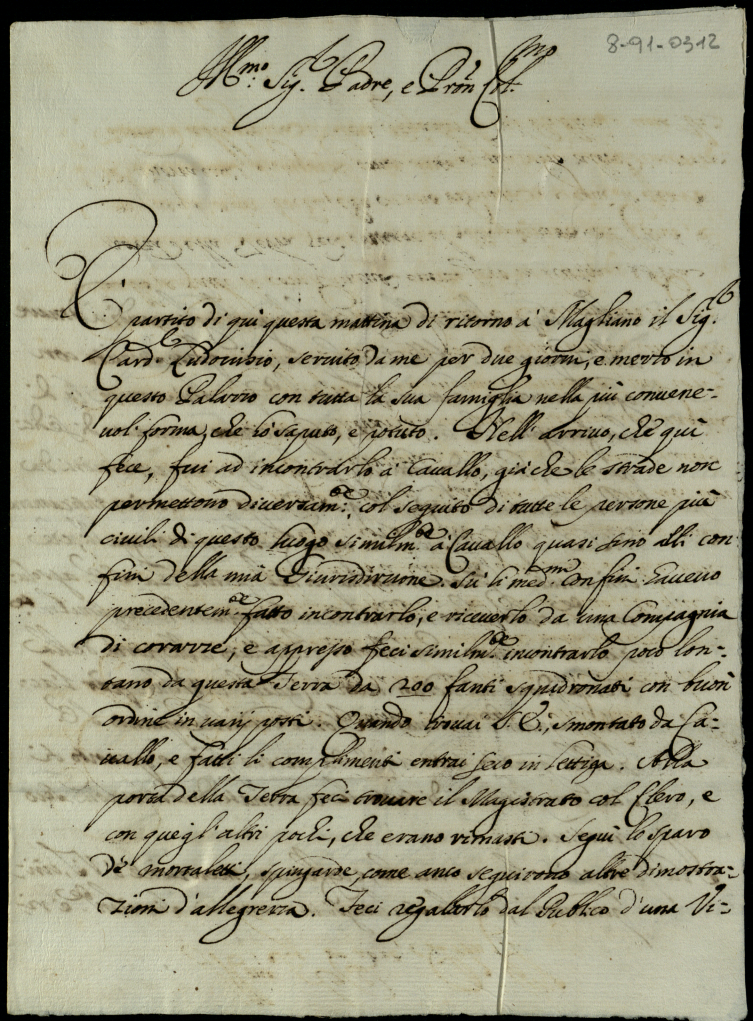 8-91-0312
Ill.mo Sig.r Padre, e Pron Col.mo
È partito di qui questa mattina di ritorno à Magliano il Sig.r
Card. Ludovisio, servito da me per due giorni, e mezzo in
questo Palazzo con tutta la sua famiglia nella più convene-
vol forma, che hò saputo, e potuto. Nell'arrivo, che quì
fece, fui ad incontrarlo à Cavallo, già che le strade non
permettono diversam.te, col seguito di tutte le persone più
civili di questo luogo similm.te à Cavallo quasi sino alli con
fini della mia Giurisdizzione. Sù li med.mi confini havevo
precedentem.te fatto incontrarlo, e riceverlo da una Compagnia
di corazze, e appresso feci similm.te incontrarlo poco lon-
tano da questa Terra da 200 fanti squadronati con buon
ordine in varij posti. Quando trovai S. E., smontato da Ca-
vallo, e fatti li complimenti entrai seco in lettiga. Alla
porta della Terra feci trovare il Magistrato col Clero, e
con quegl'altri pochi, che erano rimasti. Seguì lo sparo
de mortaletti, spingarde, come anco seguirono altre dimostra-
zioni d'allegrezza. Feci regalarlo dal Publico d'una Vi-